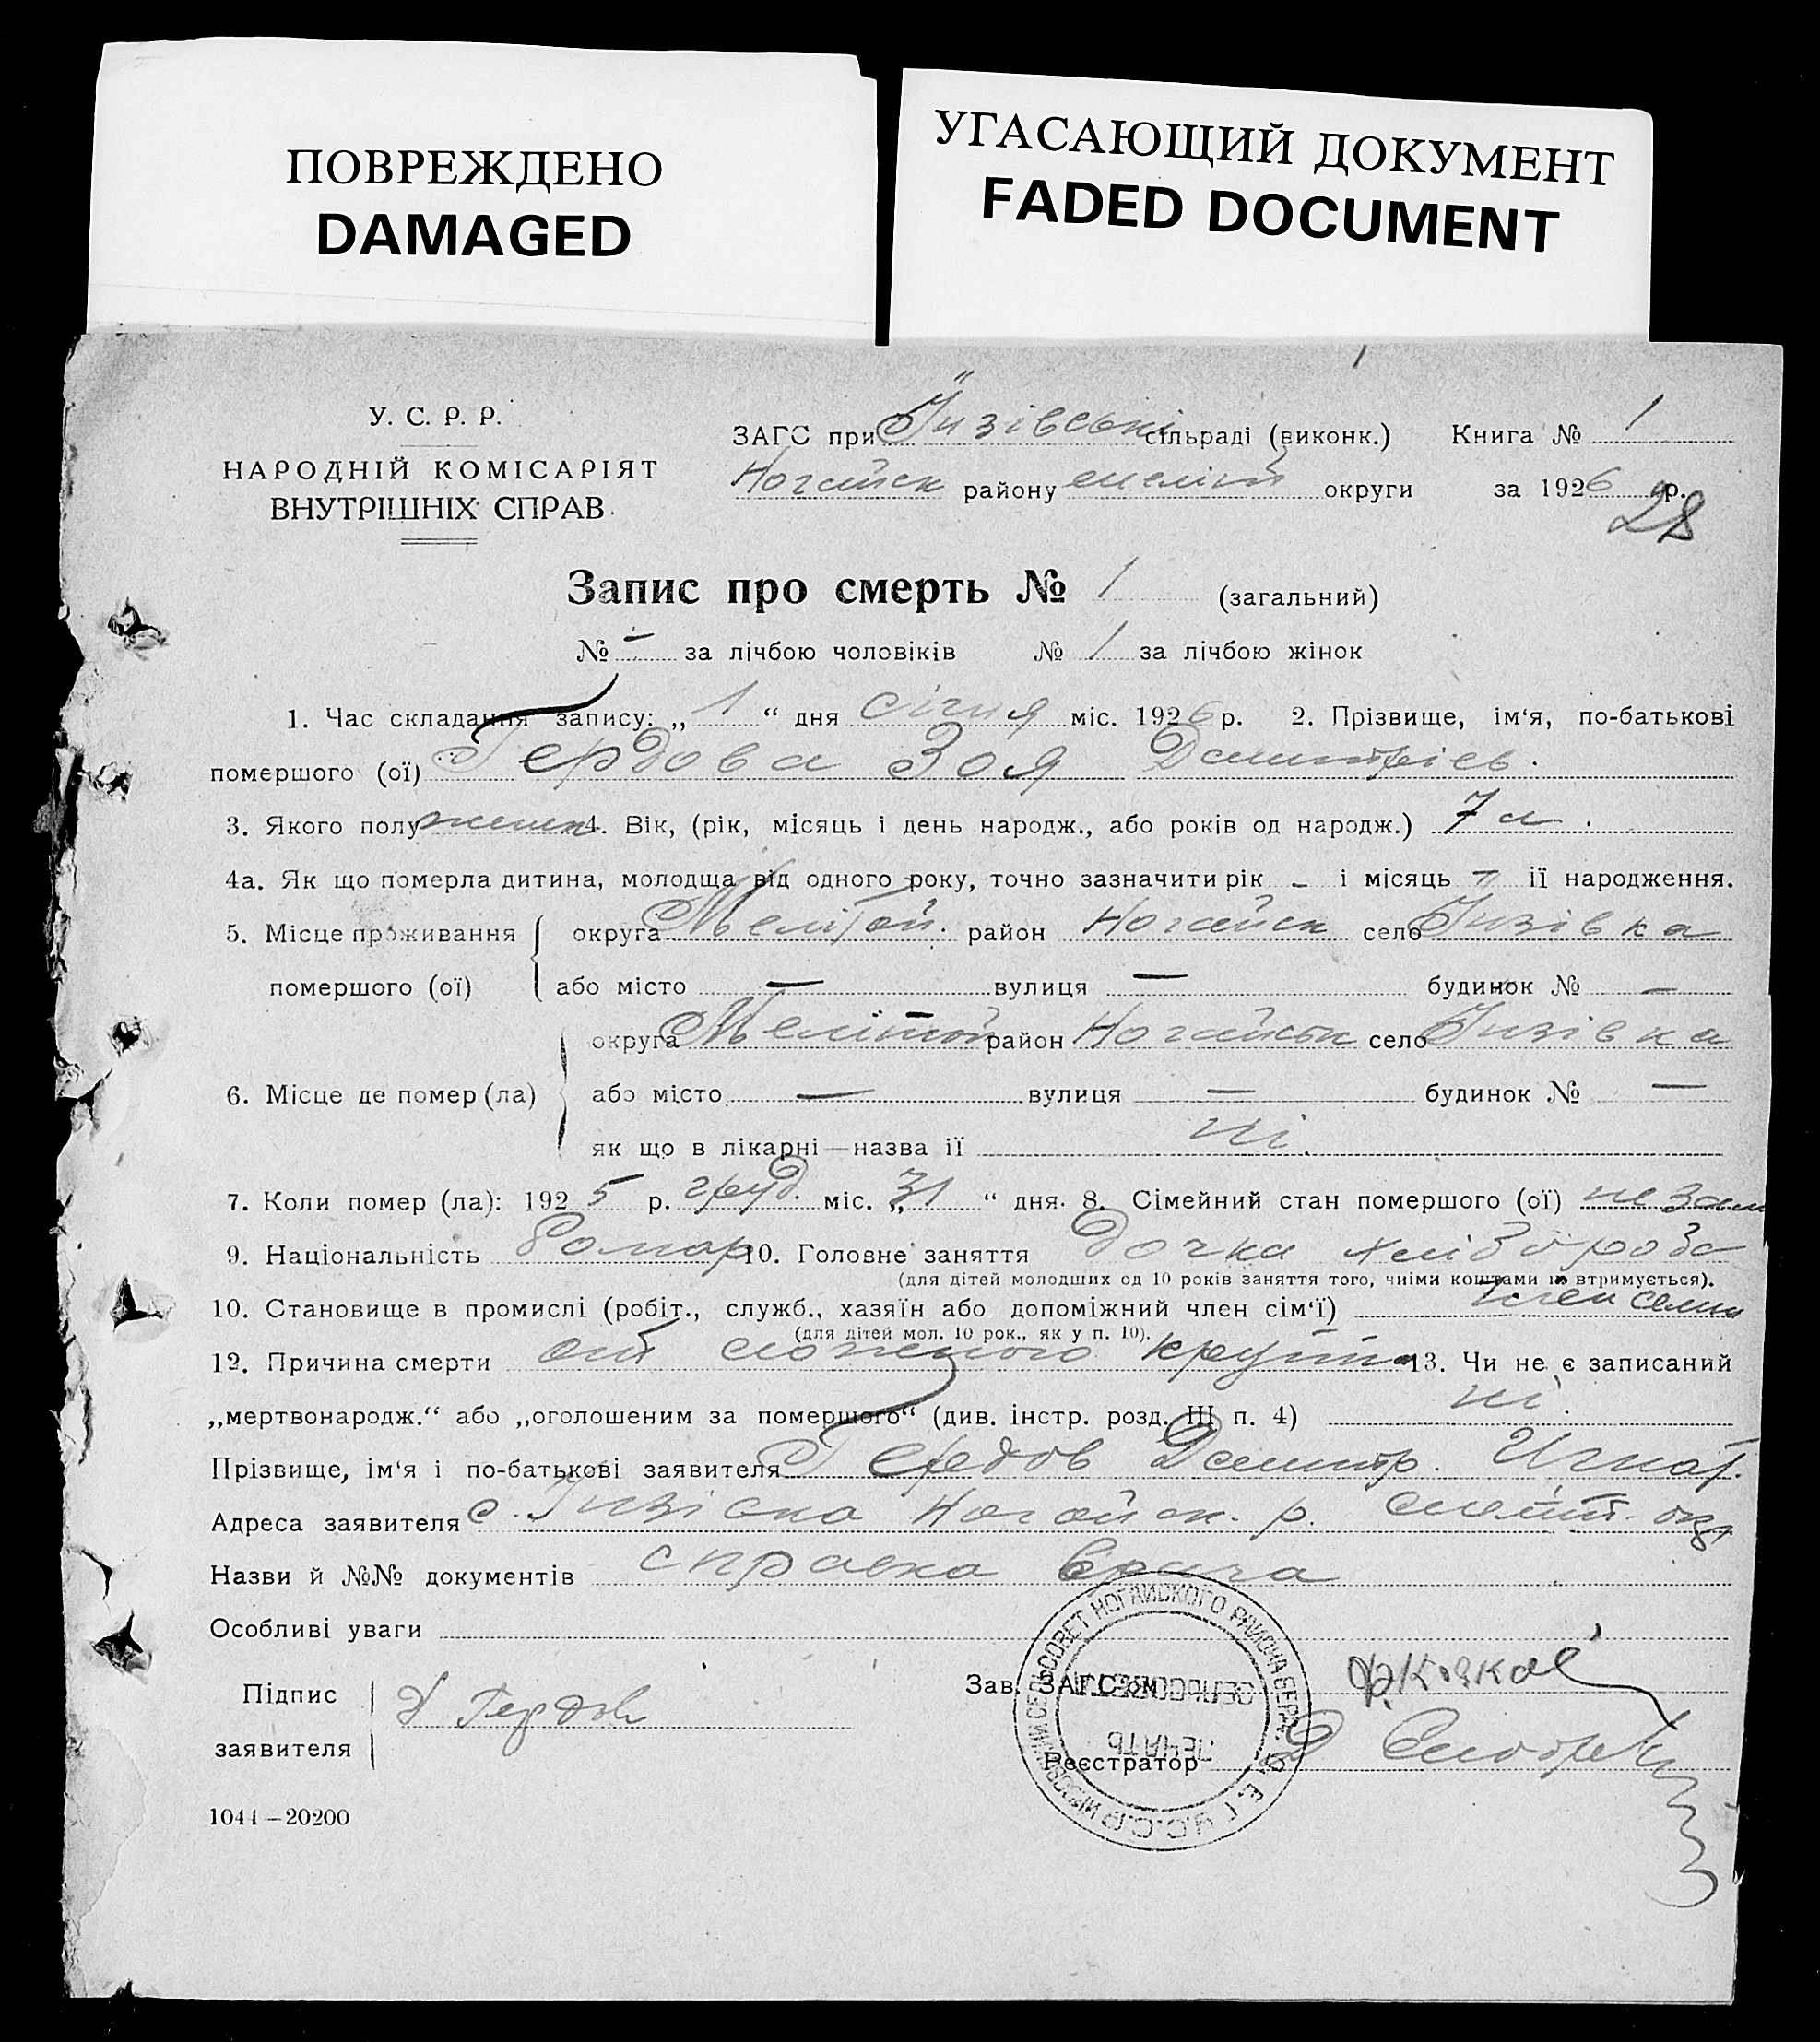 ПОВРЕЖДЕНО
DAMAGED
УГАСАЮЩИЙ ДОКУМЕНТ
FADED DOCUMENT
У. С. Р. Р.
НАРОДНІЙ КОМІСАРІЯТ
ВНУТРІШНІХ СПРАВ.
ЗАГС при Інзівські сільраді (виконк.) Книга № 1
Ногайск району меліт округи за 1926 р.
28
Запис про смерть № 1 (загальний)
№ - за лічбою чоловіків № 1 за лічбою жінок
1. Час складання запису: „ 1 “ дня січня міс. 1926 р. 2. Прізвище, ім‘я, по-батькові
помершого (ої) Гердова Зоя Дмитріев.
3. Якого полу женск 4. Вік, (рік, місяць і день народж., або років од народж.) 7 л.
4а. Як що померла дитина, молодща від одного року, точно зазначити рік - і місяць - ії народження.
5. Місце проживання помершого (ої) округа Меліт. район Ногайск село Інзівка
або місто — вулиця — будинок № —
6. Місце де помер (ла) округа Меліт район Ногайськ село Інзівка
або місто — вулиця — будинок № —
як що в лікарні—назва ії ні.
7. Коли помер (ла): 1925 р. груд. міс. „31“ дня. 8. Сімейний стан помершого (ої) не зам
9. Національність 10. Головне заняття дочка хлібороба
(для дітей молодших од 10 років заняття того, чиїми коштами ї втримується).
10. Становище в промислі (робіт., служб., хазяїн або допоміжний член сім‘ї) член семьи
(для дітей мол. 10 рок., як у п. 10).
12. Причина смерти от ложного крупа 13. Чи не є записаний
„мертвонародж.“ або „оголошеним за помершого“ (див. інстр. розд. III п. 4) ні.
Прізвище, ім‘я і по-батькові заявителя Гердов Дмитр. Игнат.
Адреса заявителя с. Інзівка Ногайск. р. меліт. окр
Назви й №№ документів справка врача
Особливі уваги
Підпис заявителя Д Гердов
Зав. ЗАГС‘ом
Реєстратор
СЕЛЬСОВЕТ НОГАЙСКОГО РАЙОНА У.С.С.Р.
ПЕЧАТЬ
1041—20200